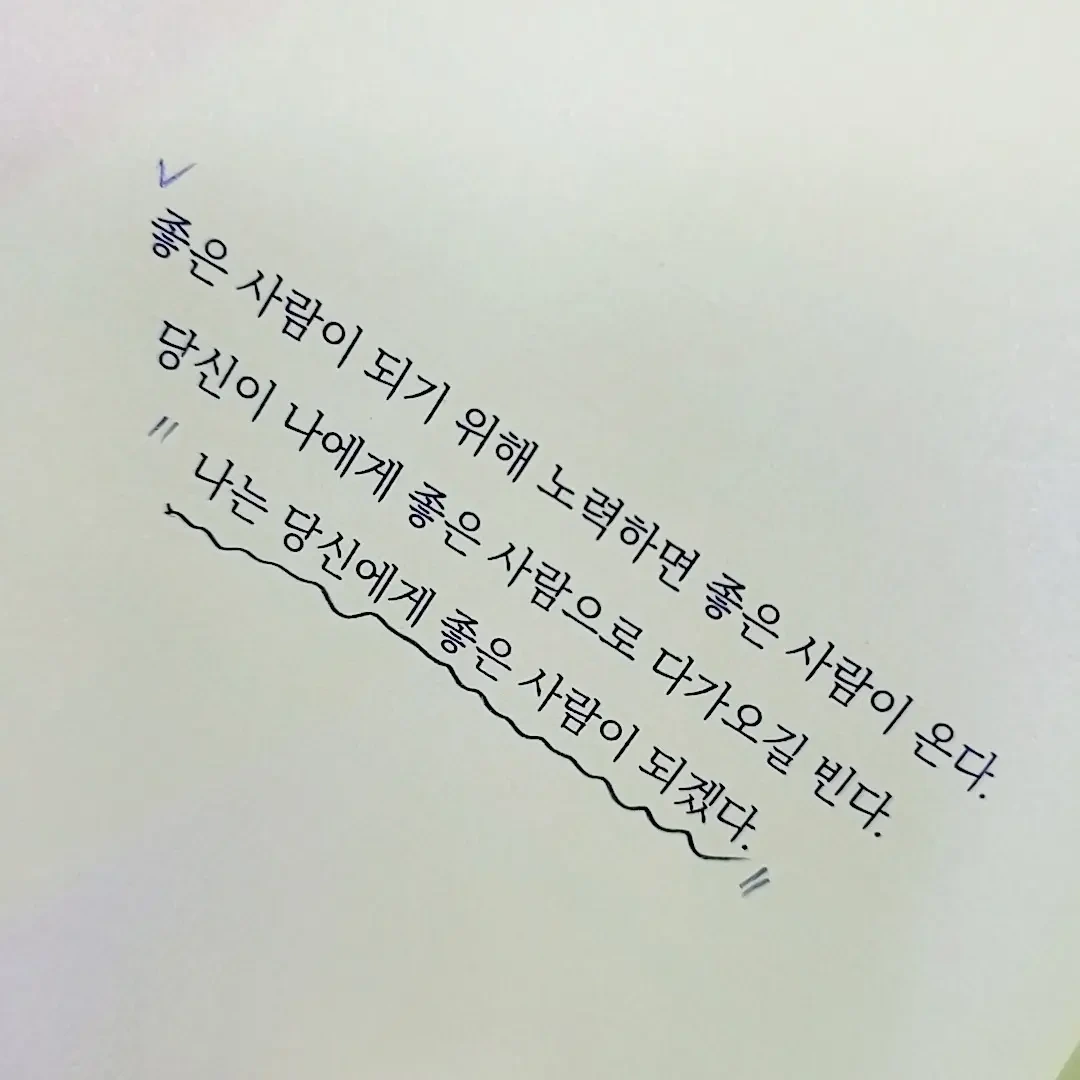 좋은 사람이 되기 위해 노력하면 좋은 사람이 온다.
당신이 나에게 좋은 사람으로 다가오길 빈다.
" 나는 당신에게 좋은 사람이 되겠다. "